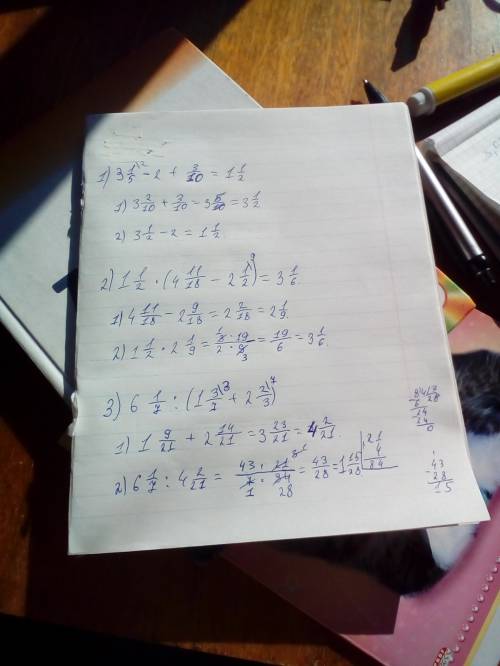 1) 3 1/5 \2 - 2 + 3/10 = 1 1/2
1) 3 2/10 + 3/10 = 3 5/10 = 3 1/2
2) 3 1/2 - 2 = 1 1/2
2) 1 1/2 · (4 11/18 - 2 1/2 \9) = 3 1/6
1) 4 11/18 - 2 9/18 = 2 2/18 = 2 1/9
2) 1 1/2 · 2 1/9 = 3 · 19 / 2 · 9 = 19/6 = 3 1/6
3) 6 1/7 : (1 3/7 \3 + 2 2/3 \7)
1) 1 9/21 + 2 14/21 = 3 23/21 = 4 2/21
2) 6 1/7 : 4 2/21 = 43 · 21 / 7 · 84 = 43/28 = 1 15/28
21
4
84
84 3
6 28
24
24
0
43
- 28
15